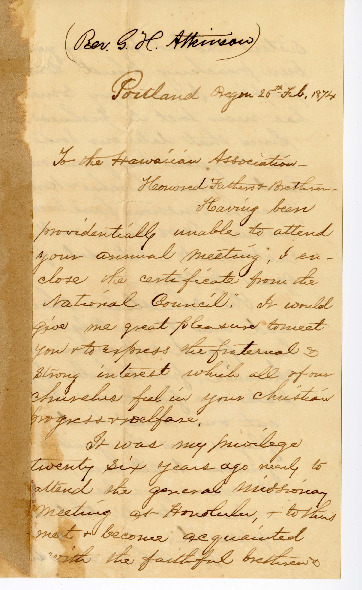 (Rev. G. H. Atkinson)
Portland Oregon 20th Feb. 1874
To the Hawaiian Association—
Honored Fathers & Brethren—
Having been
providentially unable to attend
your annual meeting, I en-
close the certificate from the
National Council. It would
give me great pleasure to meet
you & to express the fraternal &
strong interest which all of our
churches feel in your Christian
progress & welfare.
It was my privilege
twenty six years ago nearly to
attend the general missionary
meeting at Honolulu, & to thus
meet & become acquainted
with the faithful brethren &